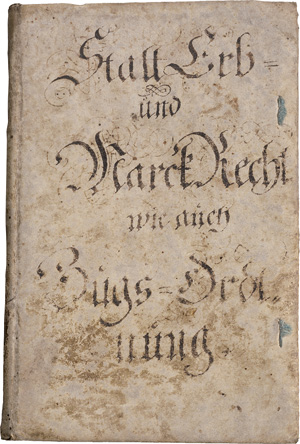 Stall Erb=
und
Marck Recht
wie auch
Bugs=Ord-
nung.